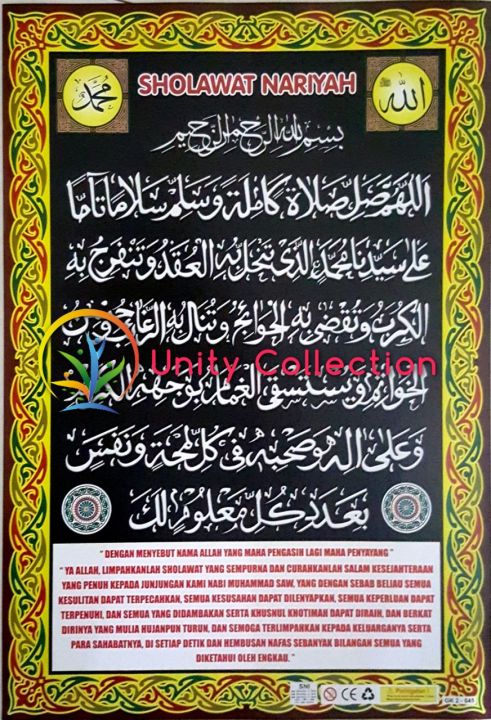 محمد
SHOLAWAT NARIYAH
الله
بسم الله الرحمن الرحيم
اللهم صل صلاة كاملة وسلم سلاما تاما
على سيدنا محمد الذي تنحل به العقد وتنفرج به
الكرب وتقضى به الحوائج وتنال به
Unity Collection
الخواتم ويستسقى الغمام بوجهه
وعلى اله وصحبه في كل لمحة ونفس
بعدد كل معلوم لك
" DENGAN MENYEBUT NAMA ALLAH YANG MAHA PENGASIH LAGI MAHA PENYAYANG "
" YA ALLAH, LIMPAHKANLAH SHOLAWAT YANG SEMPURNA DAN CURAHKANLAH SALAM KESEJAHTERAAN
YANG PENUH KEPADA JUNJUNGAN KAMI NABI MUHAMMAD SAW, YANG DENGAN SEBAB BELIAU SEMUA
KESULITAN DAPAT TERPECAHKAN, SEMUA KESUSAHAN DAPAT DILENYAPKAN, SEMUA KEPERLUAN DAPAT
TERPENUHI, DAN SEMUA YANG DIDAMBAKAN SERTA KHUSNUL KHOTIMAH DAPAT DIRAIH, DAN BERKAT
DIRINYA YANG MULIA HUJANPUN TURUN, DAN SEMOGA TERLIMPAHKAN KEPADA KELUARGANYA SERTA
PARA SAHABATNYA, DI SETIAP DETIK DAN HEMBUSAN NAFAS SEBANYAK BILANGAN SEMUA YANG
DIKETAHUI OLEH ENGKAU. "
SNI
CE
Peringatan !
GK 2 - 641